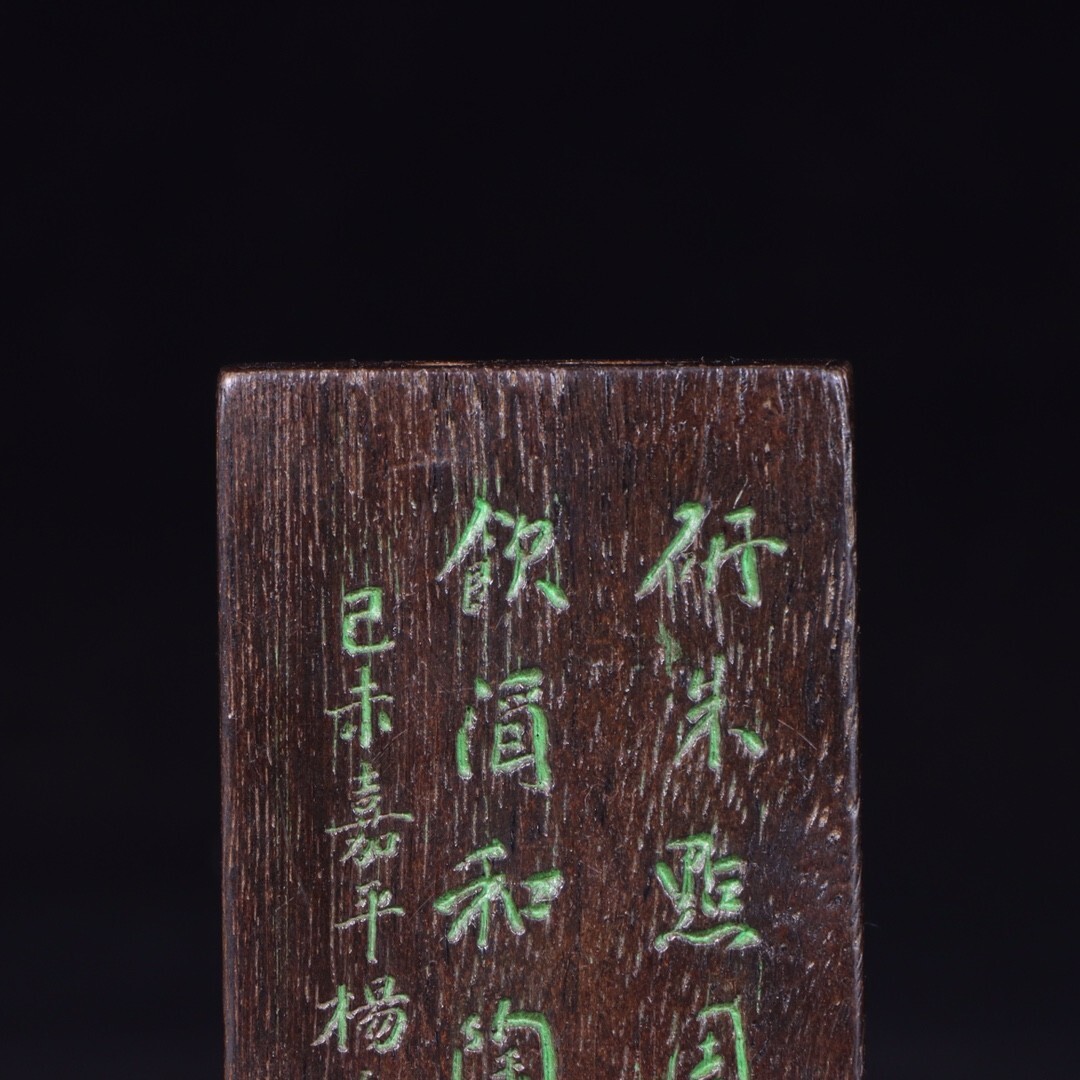 研朱點周
飲酒和陶
己未嘉平楊